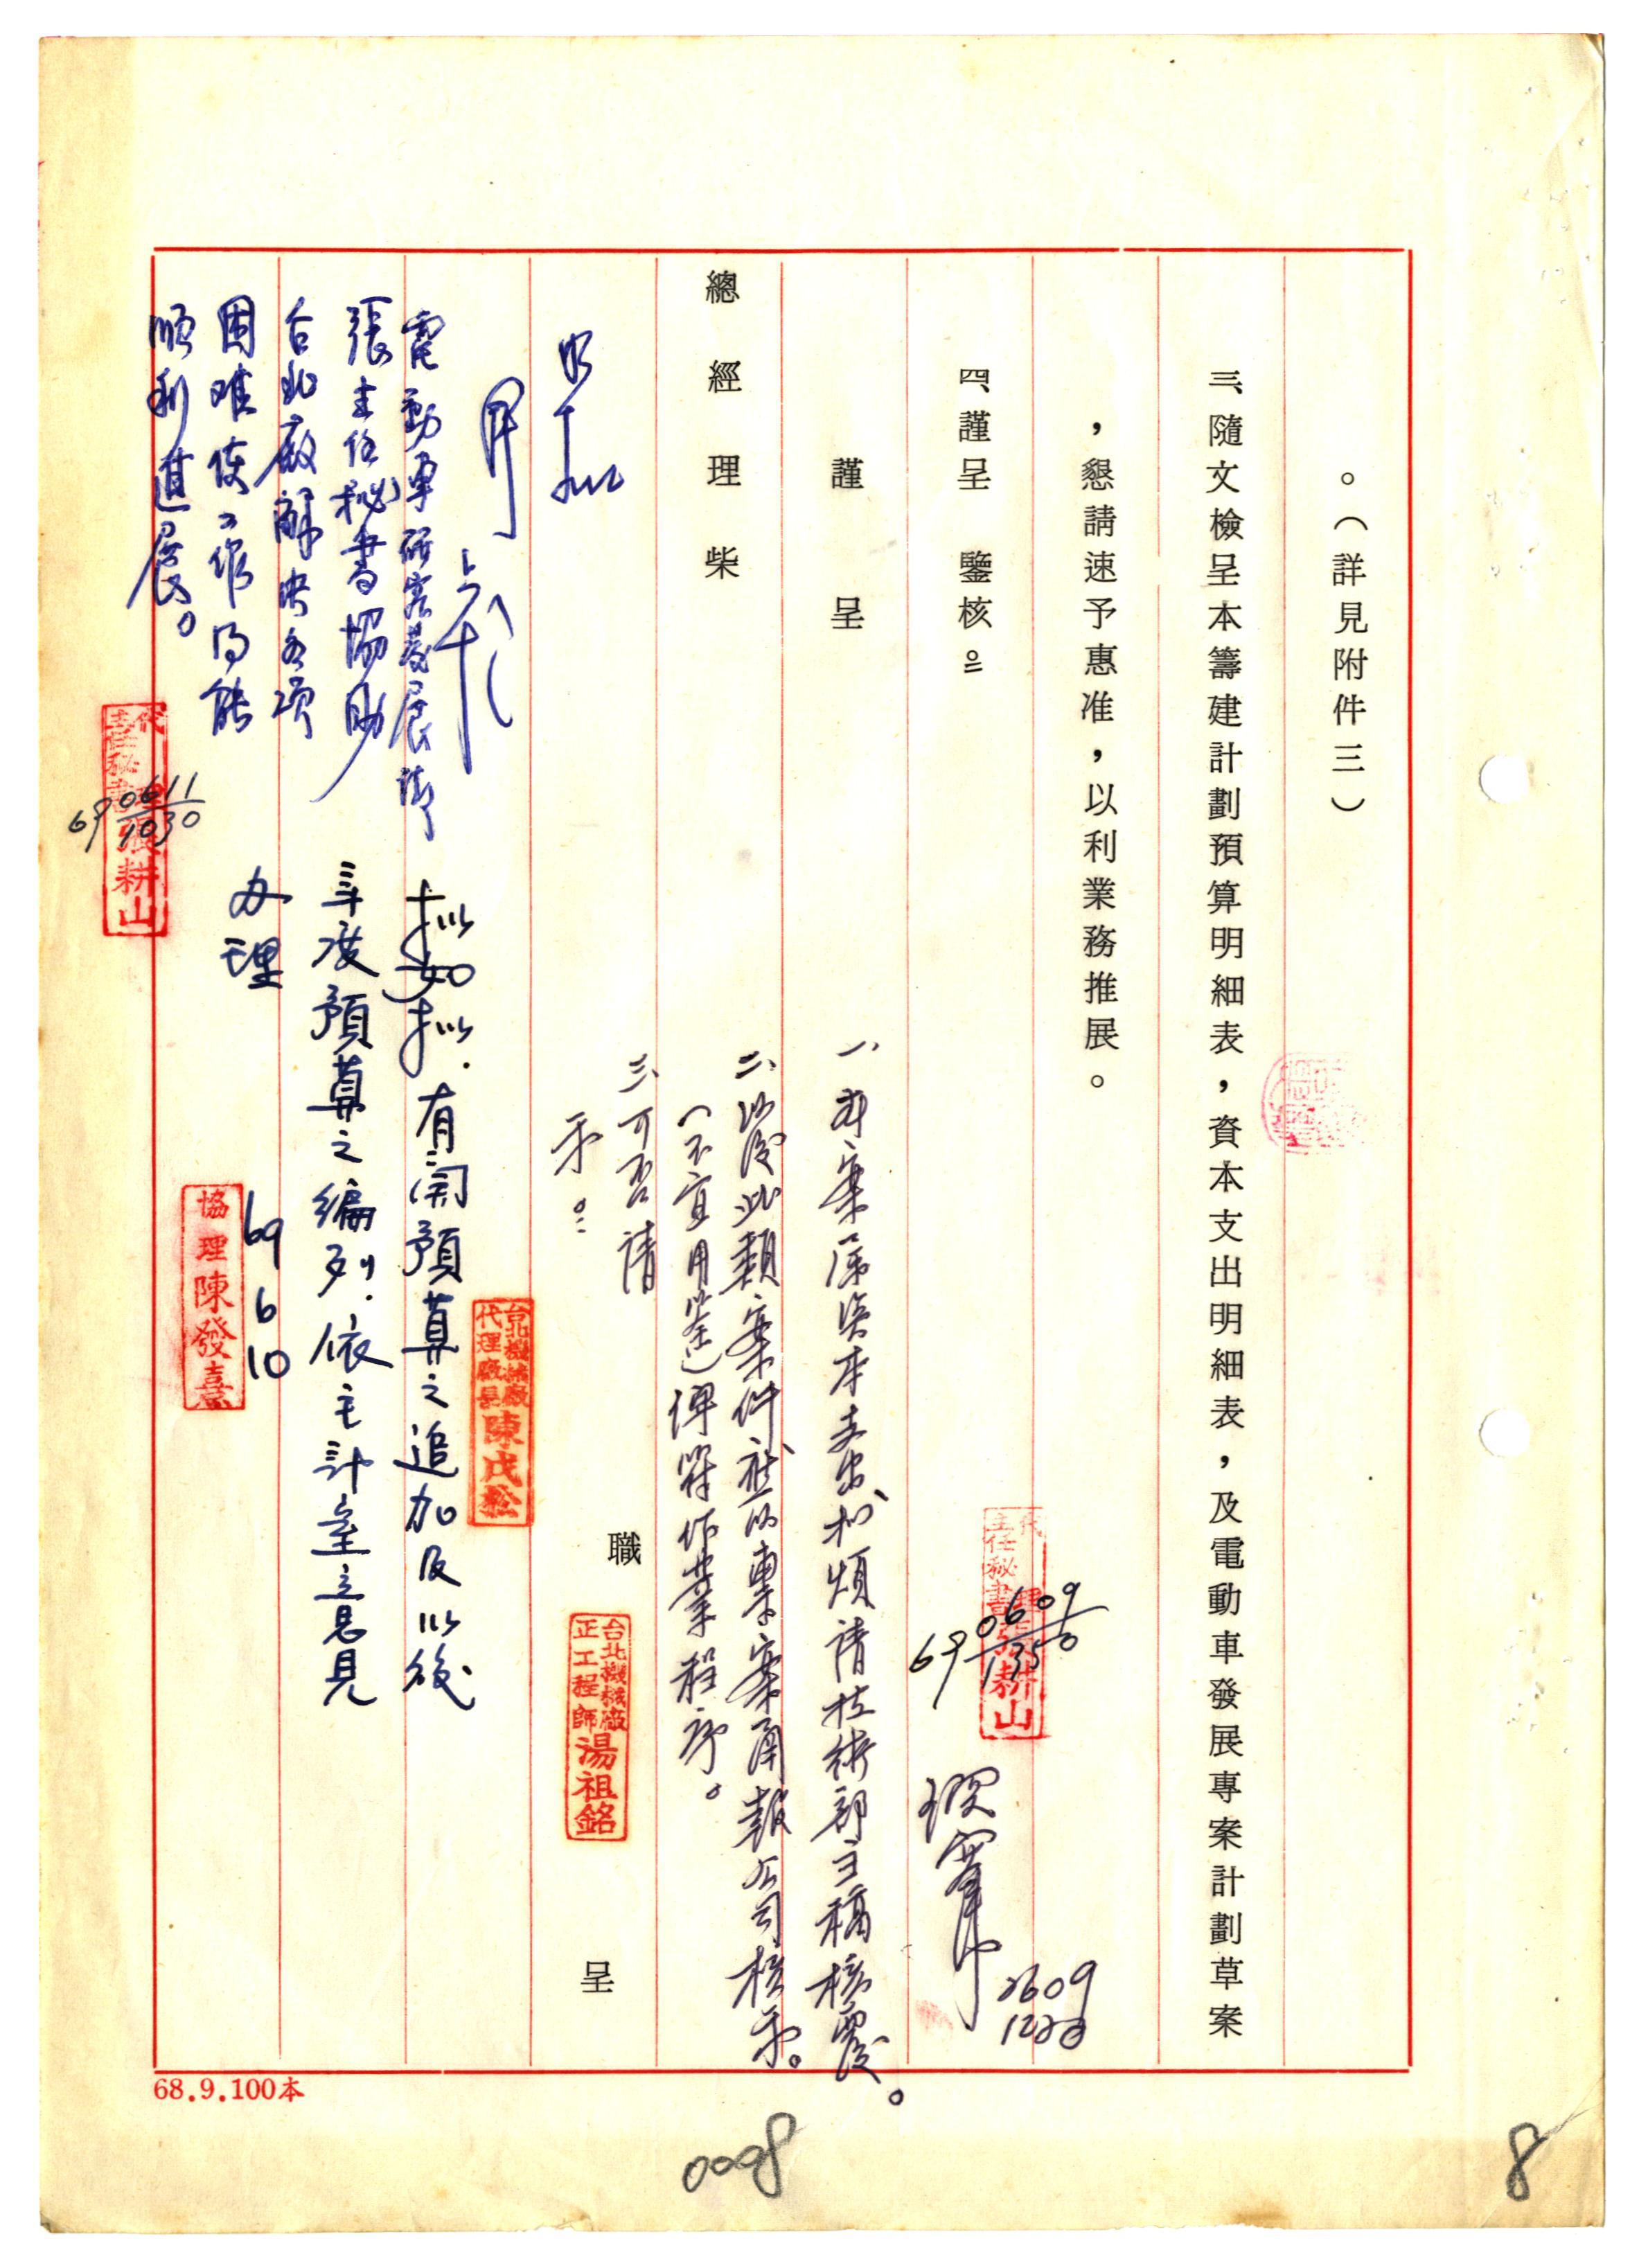 。（詳見附件三）
三、隨文檢呈本籌建計劃預算明細表，資本支出明細表，及電動車發展專案計劃草案
，懇請速予惠准，以利業務推展。
四、謹呈　鑒核。
謹　呈
總　經　理　柴
職
台北機械廠
正工程師 湯祖銘
呈
代
主任秘書 張耕山
69 0609 1350
0609
一、本案屬資本支出擬煩請技術部主稿核處。
二、以後此類案件應以專案函報公司核示。
（不宜用簽）俾符作業程序。
三、可否請
示。
台北機械廠
代理廠長 陳戊松
擬如擬．有關預算之追加及以後
年度預算之編列．依主計室意見
办理
69 6 10
協理 陳發熹
如擬
電動車研究發展請
張主任秘書協助
台北廠解決各項
困難使工作得能
順利進展。
代
主任秘書 張耕山
69 0611 1030
68.9.100本
0008
8